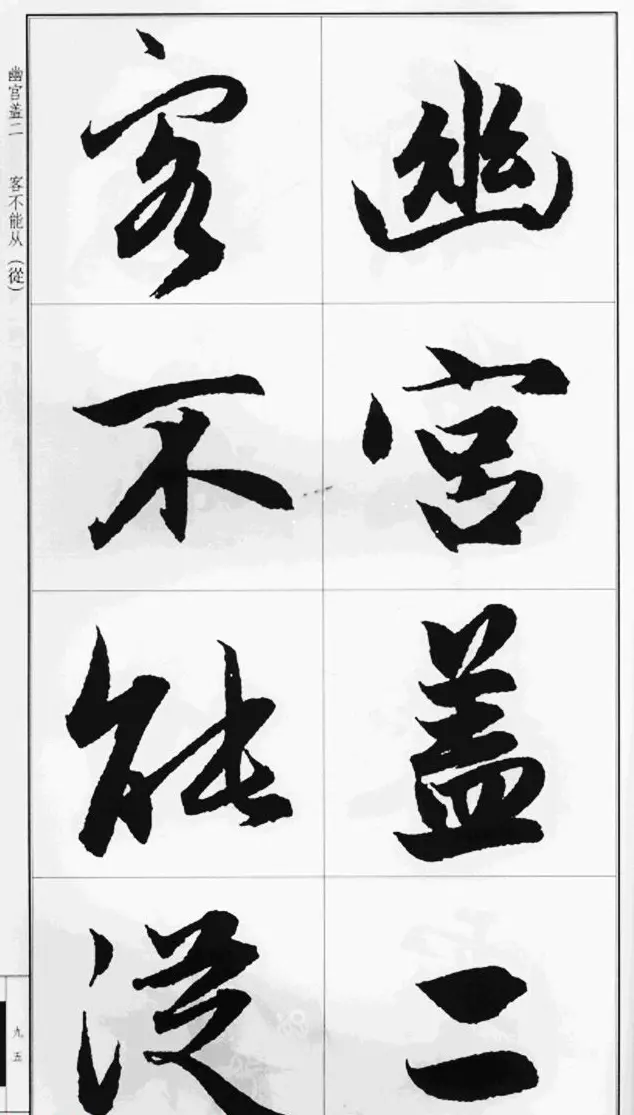 幽宫盖二
客不能從
幽宫盖二 客不能从（從）
九五